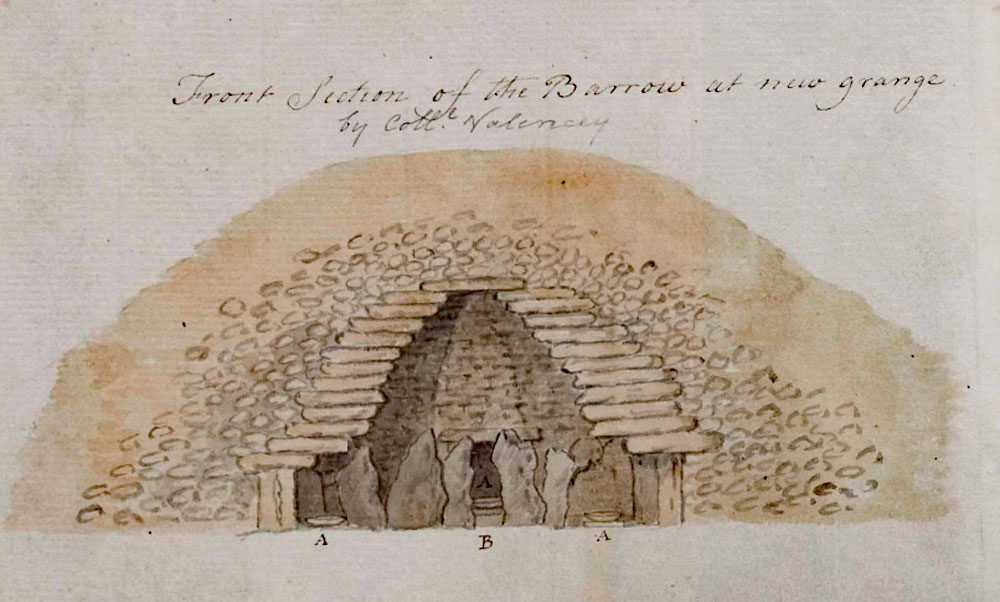 Front Section of the Barrow at new grange
by Coll.r Valencey
A
A B A